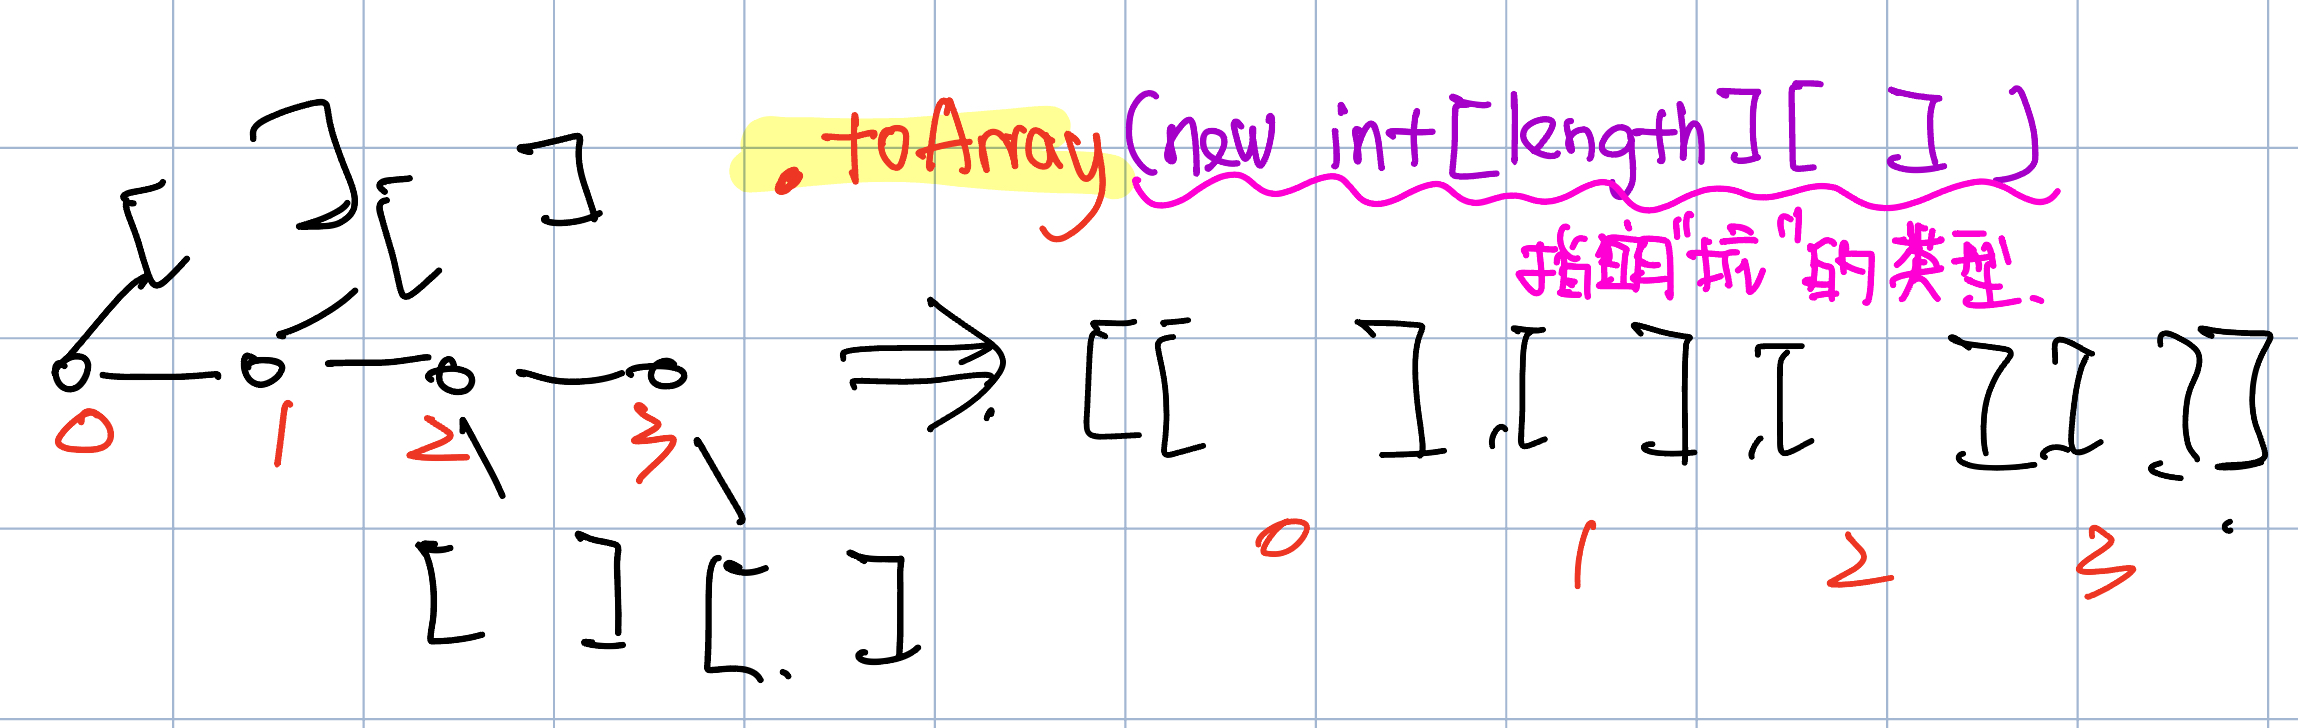 .toArray(new int[length][ ])
指明"坑"的类型.
[ ] [ ]
0 1 2 3 ⇒ [[ ],[ ],[ ],[ ]]
[ ] [ ]
0 1 2 3